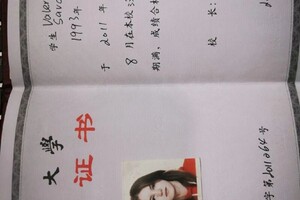 大学
证书
字第 号
学生
1993年
于 2011年
8月在本校
期满、成绩合格
校 长：